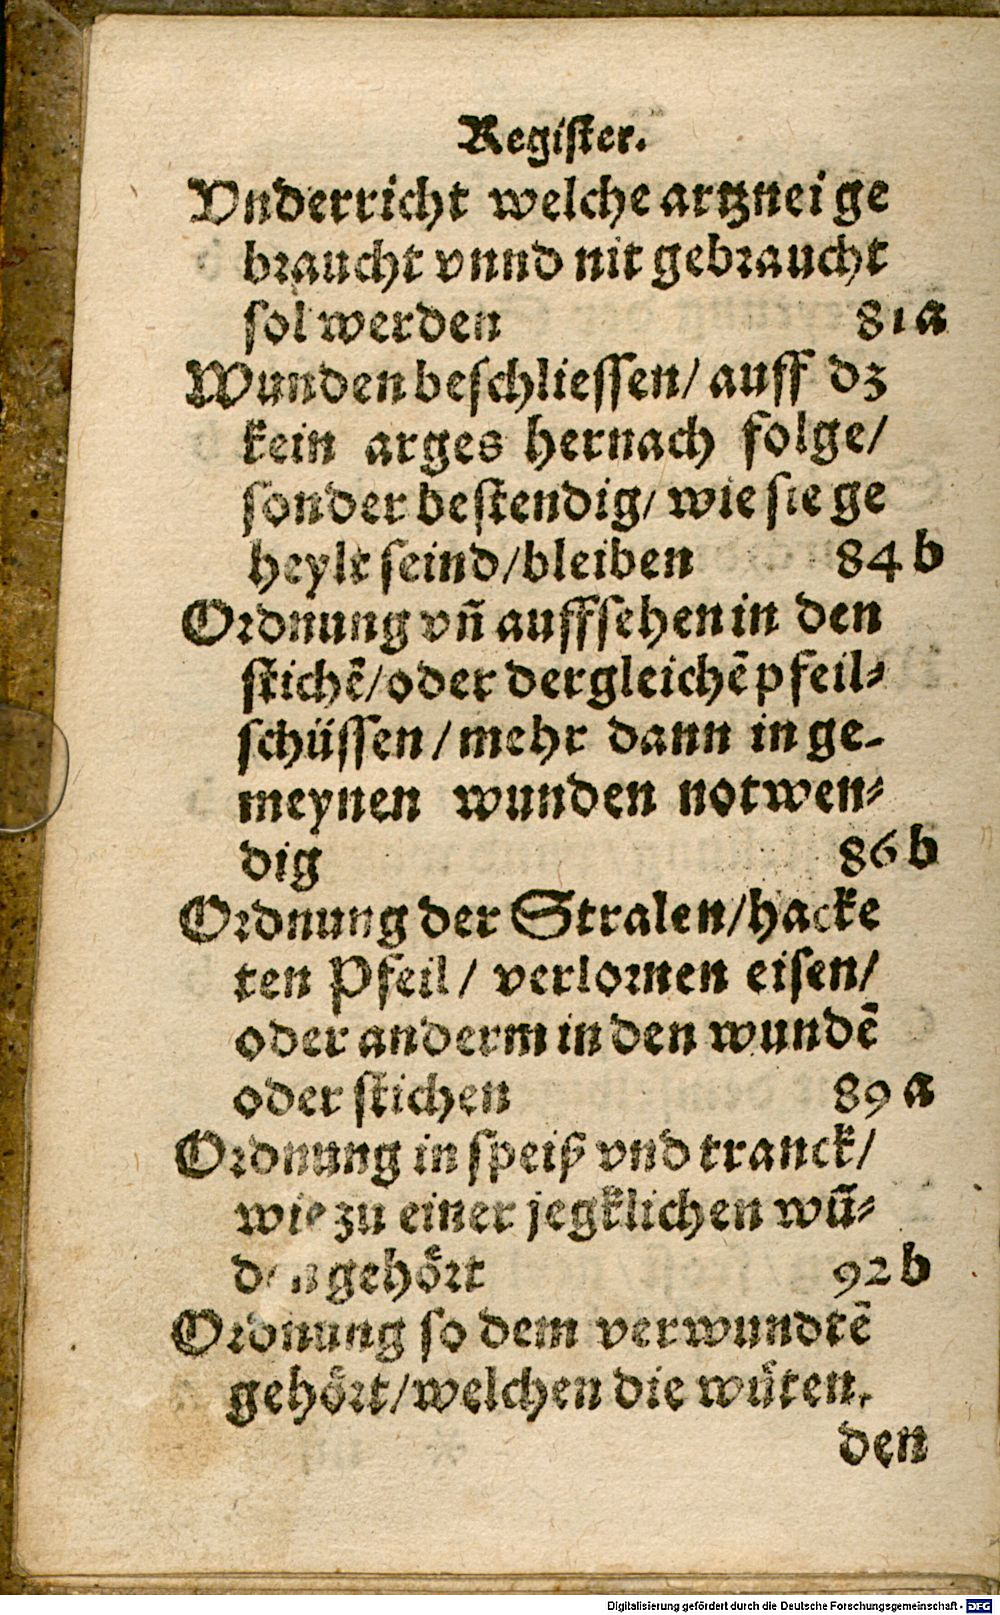 Register.
Vnderricht welche artznei ge
braucht vnnd nit gebraucht
sol werden 81a
Wunden beschliessen/ auff dz
kein arges hernach folge/
sonder bestendig/ wie sie ge
heylt seind/bleiben 84b
Ordnung vñ auffsehen in den
stichẽ/oder dergleichẽ pfeil-
schüssen/mehr dann in ge-
meynen wunden notwen-
dig 86b
Ordnung der Stralen/hacke
ten Pfeil/ verlornen eisen/
oder anderm in den wundẽ
oder stichen 89a
Ordnung in speiß vnd tranck/
wie zu einer jegklichen wũ-
den gehört 92b
Ordnung so dem verwundtẽ
gehört/welchen die wüten,
den
Digitalisierung gefördert durch die Deutsche Forschungsgemeinschaft - DFG